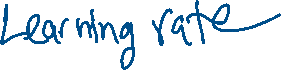 Learning rate